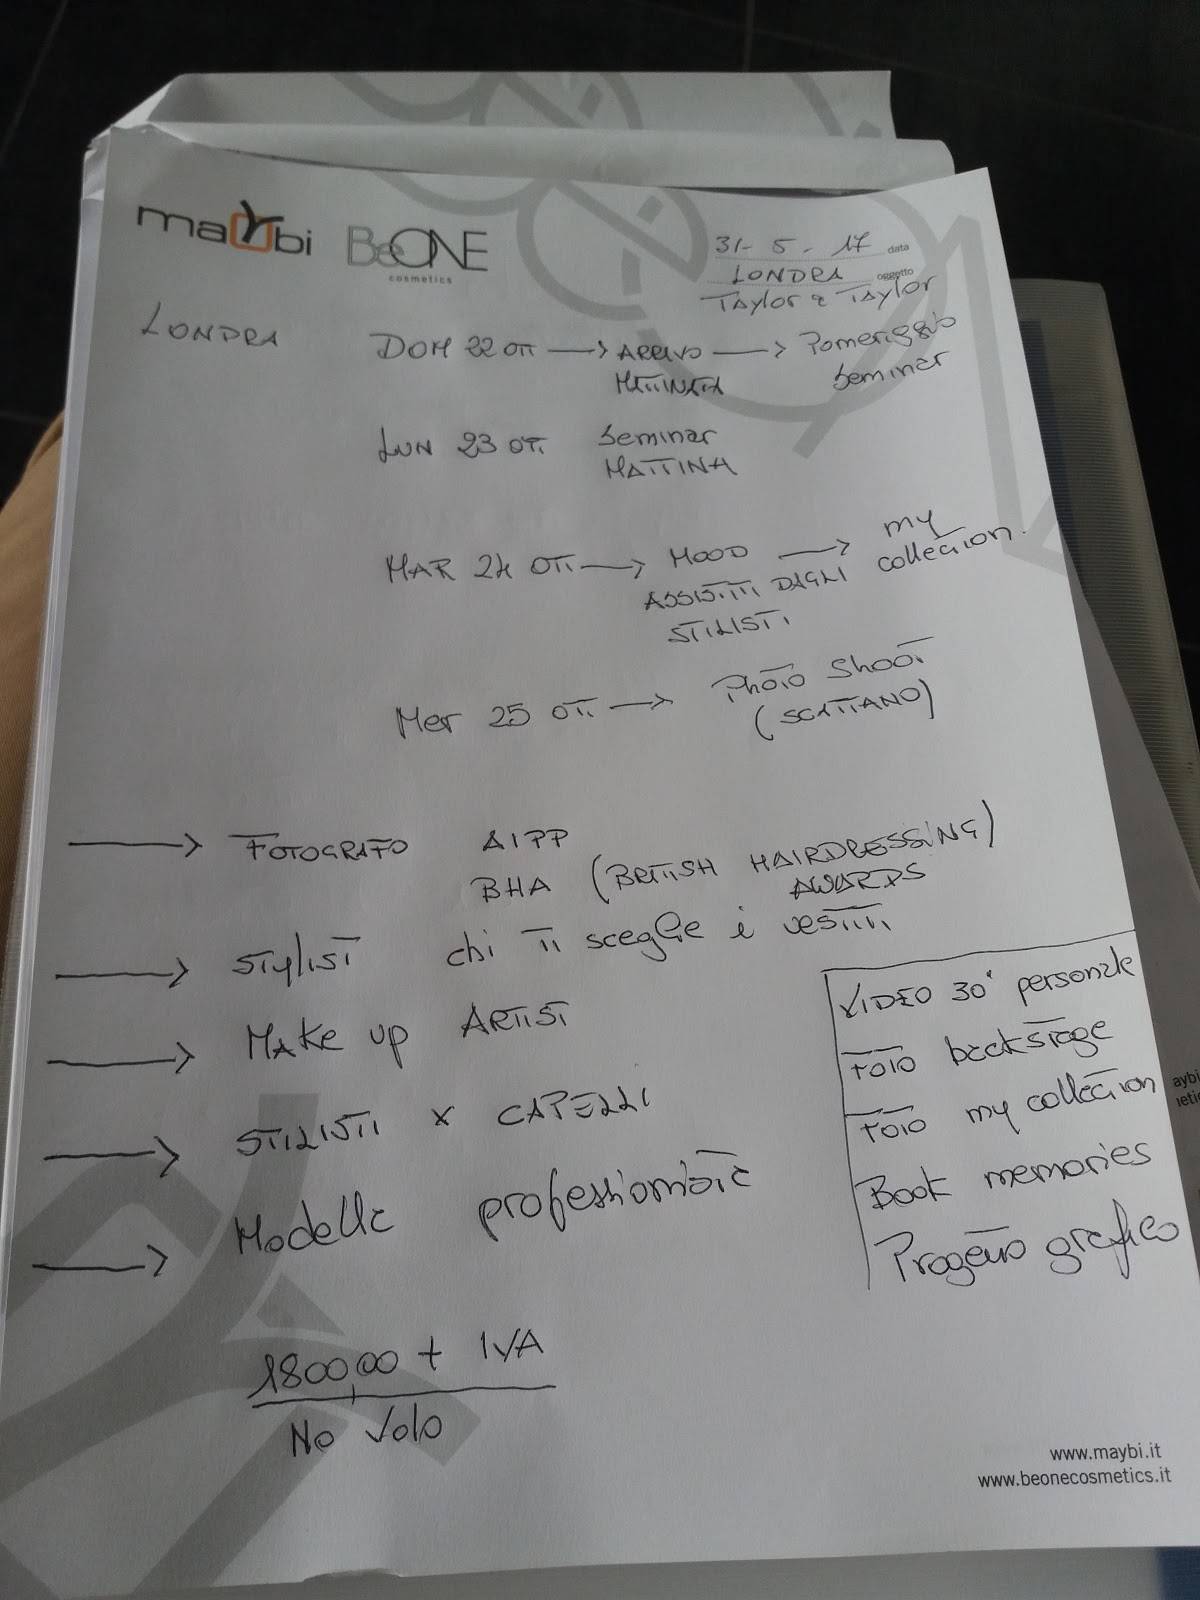 maybi BeONE
cosmetics
31-5-17 data
LONDRA oggetto
Taylor e Taylor
LONDRA
DOM 22 OTT → ARRIVO → Pomeriggio
MATTINATA Seminar
LUN 23 OTT Seminar
MATTINA
MAR 24 OTT → MOOD → my
ASSISTITI DAGLI collection.
STILISTI
Mer 25 OTT → Photo Shoot
(SCATTANO)
→ FOTOGRAFO AIPP
BHA (BRITISH HAIRDRESSING)
AWARDS
→ STylIST chi TI sceglie i vestiti
→ Make up ARTIST
→ STILISTI x CAPELLI
→ Modella professionista
VIDEO 30" personale
Foto backstage
Foto my collection
Book memories
Progetto grafico
1800,00 + IVA
No Volo
www.maybi.it
www.beonecosmetics.it